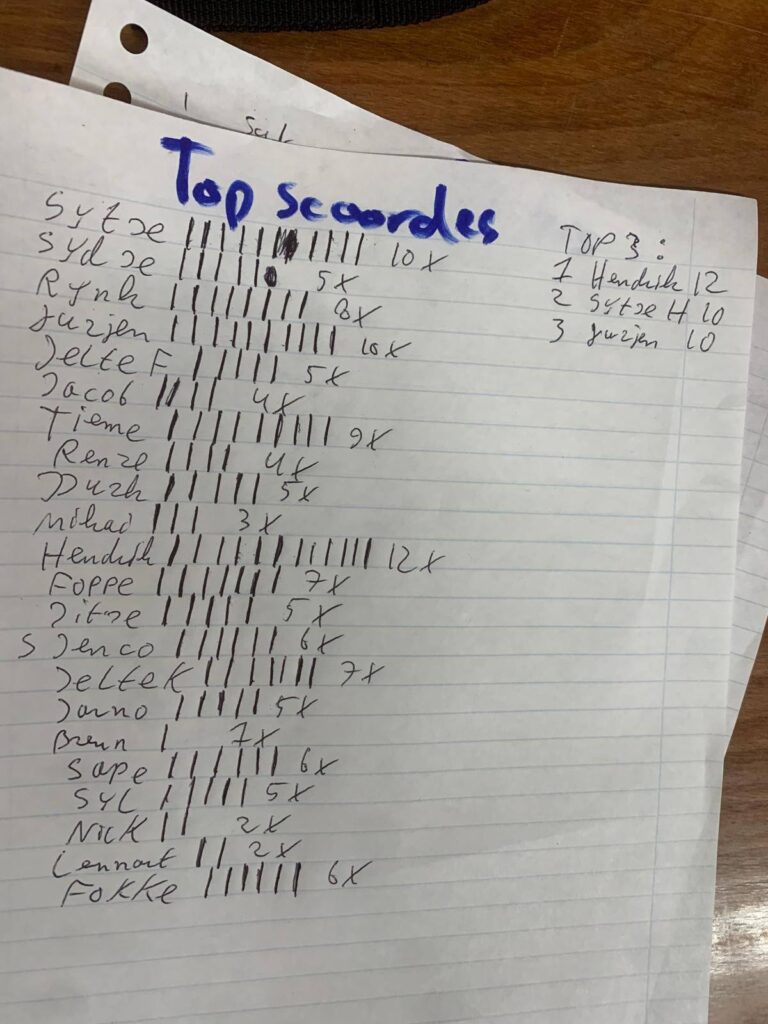 1 Sal
Top scoordes
Sytse ||||||||||| 10x
Sydse ||||| 5x
Rynk |||||||| 8x
Jurjen |||||||||| 10x
Jelte F ||||| 5x
Jacob |||| 4x
Tieme ||||||||| 9x
Renze |||| 4x
Durk ||||| 5x
Mihai ||| 3x
Hendrik |||||||||||| 12x
Foppe ||||||| 7x
Jitse ||||| 5x
S Jenco |||||| 6x
Jelte K ||||||| 7x
Jarno ||||| 5x
| 7x
Sape |||||| 6x
SYL ||||| 5x
Nick || 2x
Lennart || 2x
Fokke |||||| 6x
TOP 3:
1 Hendrik 12
2 Sytse H 10
3 Jurjen 10